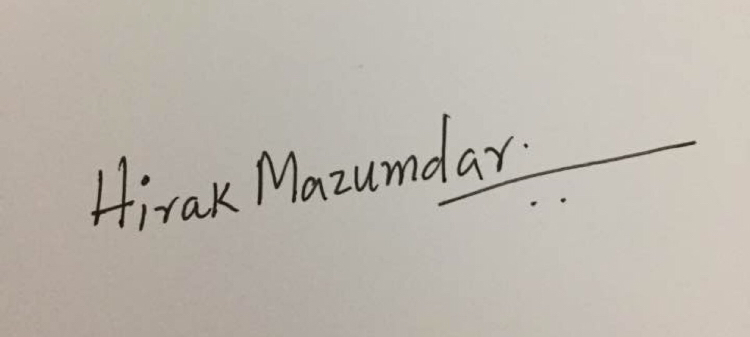 Hirak Mazumdar.